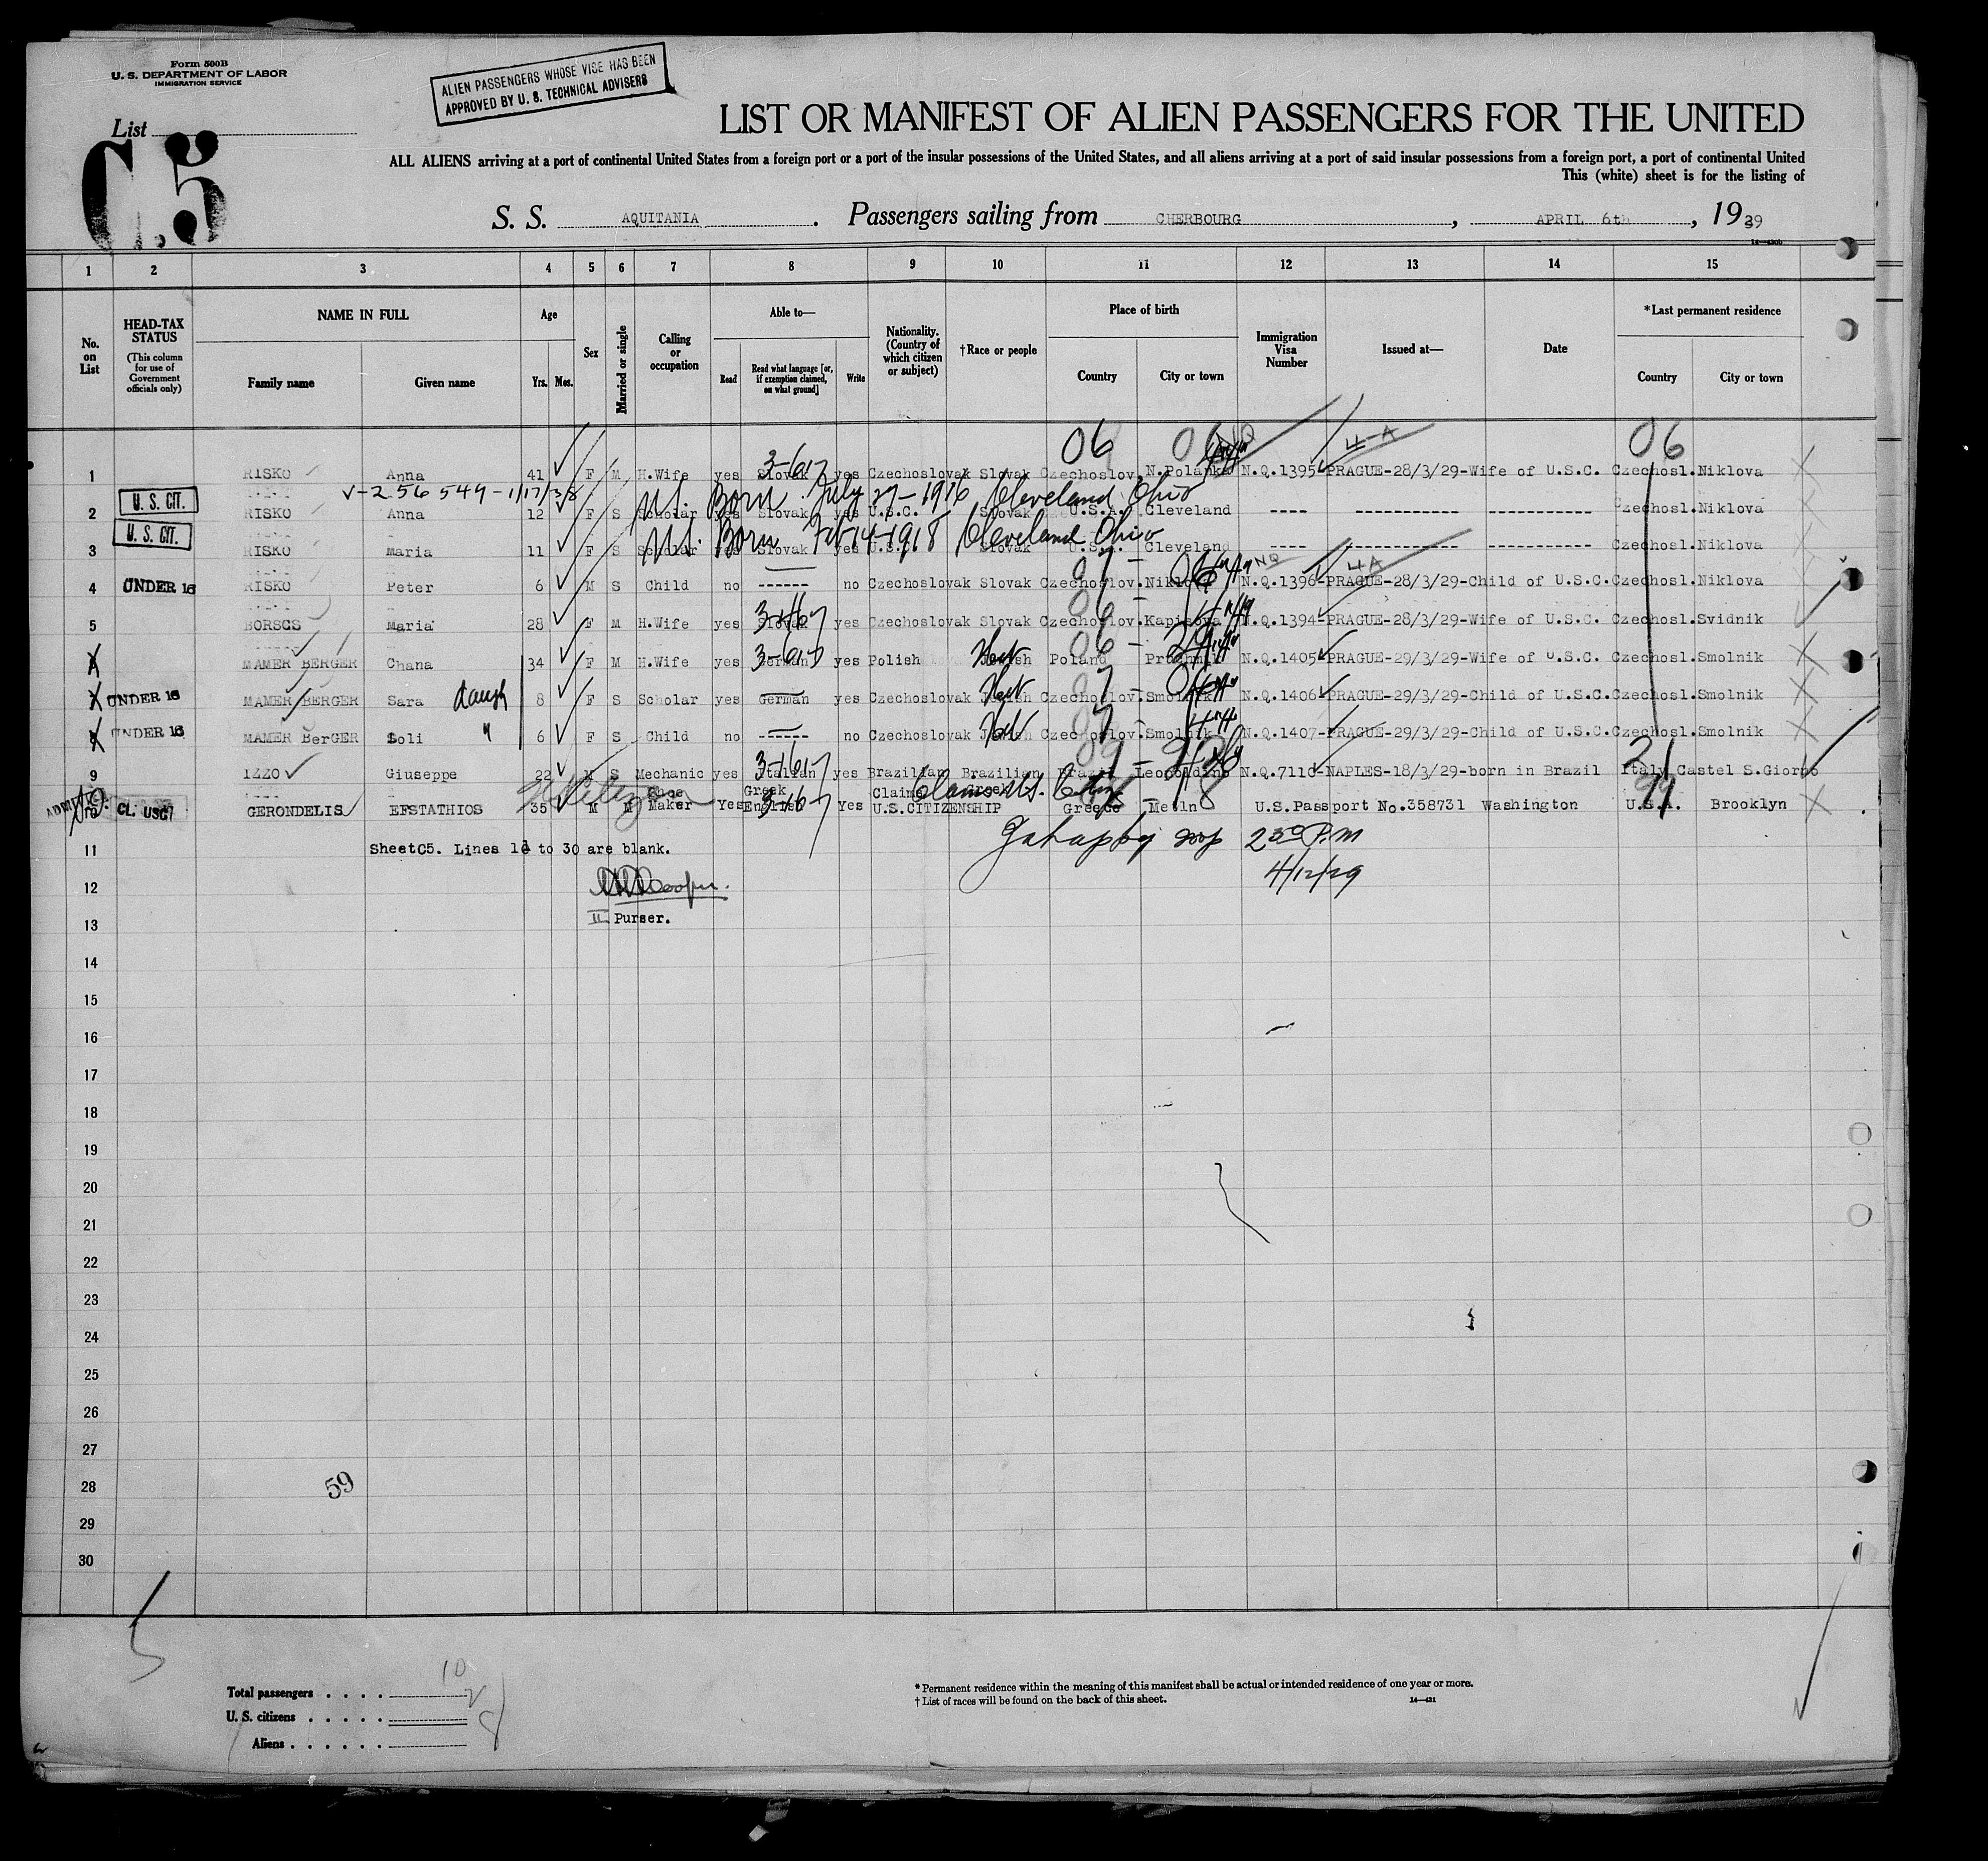 Form 500B
U. S. DEPARTMENT OF LABOR
IMMIGRATION SERVICE
ALIEN PASSENGERS WHOSE VISE HAS BEEN
APPROVED BY U. S. TECHNICAL ADVISERS
List
C.5
LIST OR MANIFEST OF ALIEN PASSENGERS FOR THE UNITED
ALL ALIENS arriving at a port of continental United States from a foreign port or a port of the insular possessions of the United States, and all aliens arriving at a port of said insular possessions from a foreign port, a port of continental United
This (white) sheet is for the listing of
S. S. AQUITANIA. Passengers sailing from CHERBOURG, APRIL 6th, 1929
1 2 3 4 5 6 7 8 9 10 11 12 13 14 15
No. on List
HEAD-TAX STATUS (This column for use of Government officials only)
NAME IN FULL Family name Given name
Age Yrs. Mos.
Sex
Married or single
Calling or occupation
Able to— Read Read what language [or, if exemption claimed, on what ground] Write
Nationality. (Country of which citizen or subject)
†Race or people
Place of birth Country City or town
Immigration Visa Number
Issued at—
Date
*Last permanent residence Country City or town
06 06 4-A 06
1 RISKO Anna 41 F M H.Wife yes Slovak yes Czechoslovak Slovak Czechoslov. N.Polanka N.Q.1395-PRAGUE-28/3/29-Wife of U.S.C. Czechosl. Niklova
V-256549-1/17/38 U.S. Born July 27-1916 Cleveland Ohio
2 U. S. CIT. RISKO Anna 12 F S Scholar yes Slovak yes U.S.C. Slovak U.S.A. Cleveland ---- Czechosl. Niklova
U.S. Born Feb 14-1918 Cleveland Ohio
3 U. S. CIT. RISKO Maria 11 F S Scholar yes Slovak yes U.S.C. Slovak U.S.A. Cleveland ---- Czechosl. Niklova
4 UNDER 16 RISKO Peter 6 M S Child no ------ no Czechoslovak Slovak Czechoslov. Niklova N.Q.1396-PRAGUE-28/3/29-Child of U.S.C. Czechosl. Niklova
5 BORSCS Maria 28 F M H.Wife yes Slovak yes Czechoslovak Slovak Czechoslov. Kapisova N.Q.1394-PRAGUE-28/3/29-Wife of U.S.C. Czechosl. Svidnik
MAMER BERGER Chana 34 F M H.Wife yes German yes Polish Jewish Poland N.Q.1405-PRAGUE-29/3/29-Wife of U.S.C. Czechosl. Smolnik
UNDER 16 MAMER BERGER Sara daugh 8 F S Scholar yes German yes Czechoslovak Jewish Czechoslov. Smolnik N.Q.1406-PRAGUE-29/3/29-Child of U.S.C. Czechosl. Smolnik
UNDER 16 MAMER BerGER Loli " 6 F S Child no ------ no Czechoslovak Jewish Czechoslov. Smolnik N.Q.1407-PRAGUE-29/3/29-Child of U.S.C. Czechosl. Smolnik
9 IZZO Giuseppe 22 M S Mechanic yes Italian yes Brazilian Brazilian Brazil Leopoldino N.Q.7110-NAPLES-18/3/29-born in Brazil Italy Castel S.Giorno
Claims U.S. Citzn
10 CL. USC GERONDELIS EFSTATHIOS 35 M M Shoe Maker Yes Greek English Yes Claims U.S.CITIZENSHIP Greek Greece U.S.Passport No.358731 Washington U.S.A. Brooklyn
11 SheetC5. Lines 11 to 30 are blank. 2 30 P.M
12 4/12/29
II Purser.
13
14
15
16
17
18
19
20
21
22
23
24
25
26
27
28 59
29
30
Total passengers . . . . 10
U. S. citizens . . . . . 2
Aliens . . . . . . 8
* Permanent residence within the meaning of this manifest shall be actual or intended residence of one year or more.
† List of races will be found on the back of this sheet.
14—431